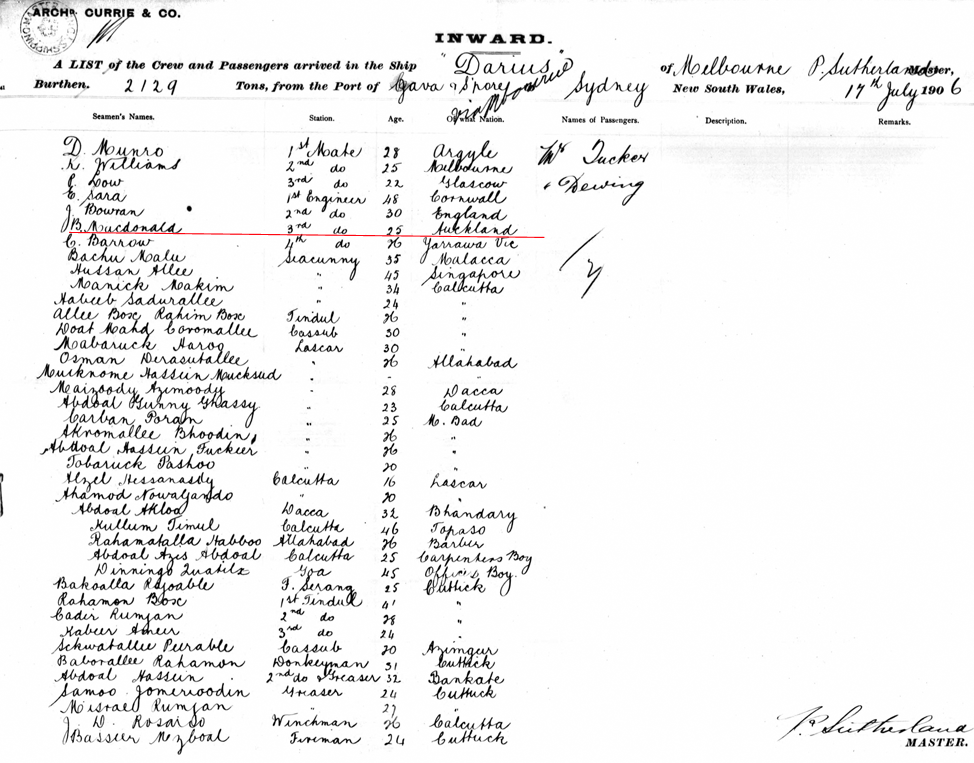 ARCHD. CURRIE & CO.
INWARD.
A LIST of the Crew and Passengers arrived in the Ship "Darius" of Melbourne P. Sutherland Master,
Burthen. 2129 Tons, from the Port of Java & S'pore via Melbourne Sydney New South Wales, 17th July 1906
Seamen's Names. Station. Age. Of what Nation. Names of Passengers. Description. Remarks.
D. Munro 1st Mate 28 Argyle Mr Tucker
K. Williams 2nd do 25 Melbourne
J. Low 3rd do 22 Glascow " Dewing
E. Sara 1st Engineer 48 Cornwall
J. Bowran 2nd do 30 England
J. B. Macdonald 3rd do 25 Auckland
C. Barrow 4th do 26 Yarrawa Vic
Bachu Malu Seacunny 35 Malacca
Hussan Allee " 45 Singapore
Manick Makim " 34 Calcutta
Habeeb Sadurallee 24 "
Allee Box Rahim Box Tindul 26 "
Doat Mahd Coromallee Cassub 30 "
Mabaruck Haroo Lascar 30 "
Osman Derasutallee " 26 Allahabad
Mucknome Hassein Mucksud " "
Maizoody Azimoody " 28 Dacca
Abdoal Gunny Ghassy " 23 Calcutta
Carban Poran " 25 M. Bad
Aknomallee Bhoodin " 26 "
Abdoal Hassein Fuckier " 26 "
Tobaruck Pashoo " 20 "
Hessanasdy Calcutta 16 Lascar
Ahamod " 20 "
Abdoal Akloo Dacca 32 Bhandary
Kullum Timul Calcutta 46 Topaso
Rahamatalla Habboo Allahabad 26 Barber
Abdoal Azis Abdoal Calcutta 25 Carpenters Boy
Dinningo Goa 45 Officers Boy.
Bakoalla Rojoable F. Serang 25 Cuttick
Rahamon Box 1st Tindul 41 "
Cadir Rumjan 2nd do 28 "
Kabeer Ameer 3rd do 24 "
Schwatallee Peerable Cassub 20 Azimgur
Baborallee Rahamon Donkeyman 31 Cuttick
Abdoal Hassein 2nd do & Greaser 32 Bankate
Samoo Jomerioodin Greaser 24 Cuttuck
Misrael Rumjan " 27 "
J. D. Rosario Winchman 26 Calcutta
Bassier Mezboal Fireman 24 Cuttuck
P. Sutherland
MASTER.